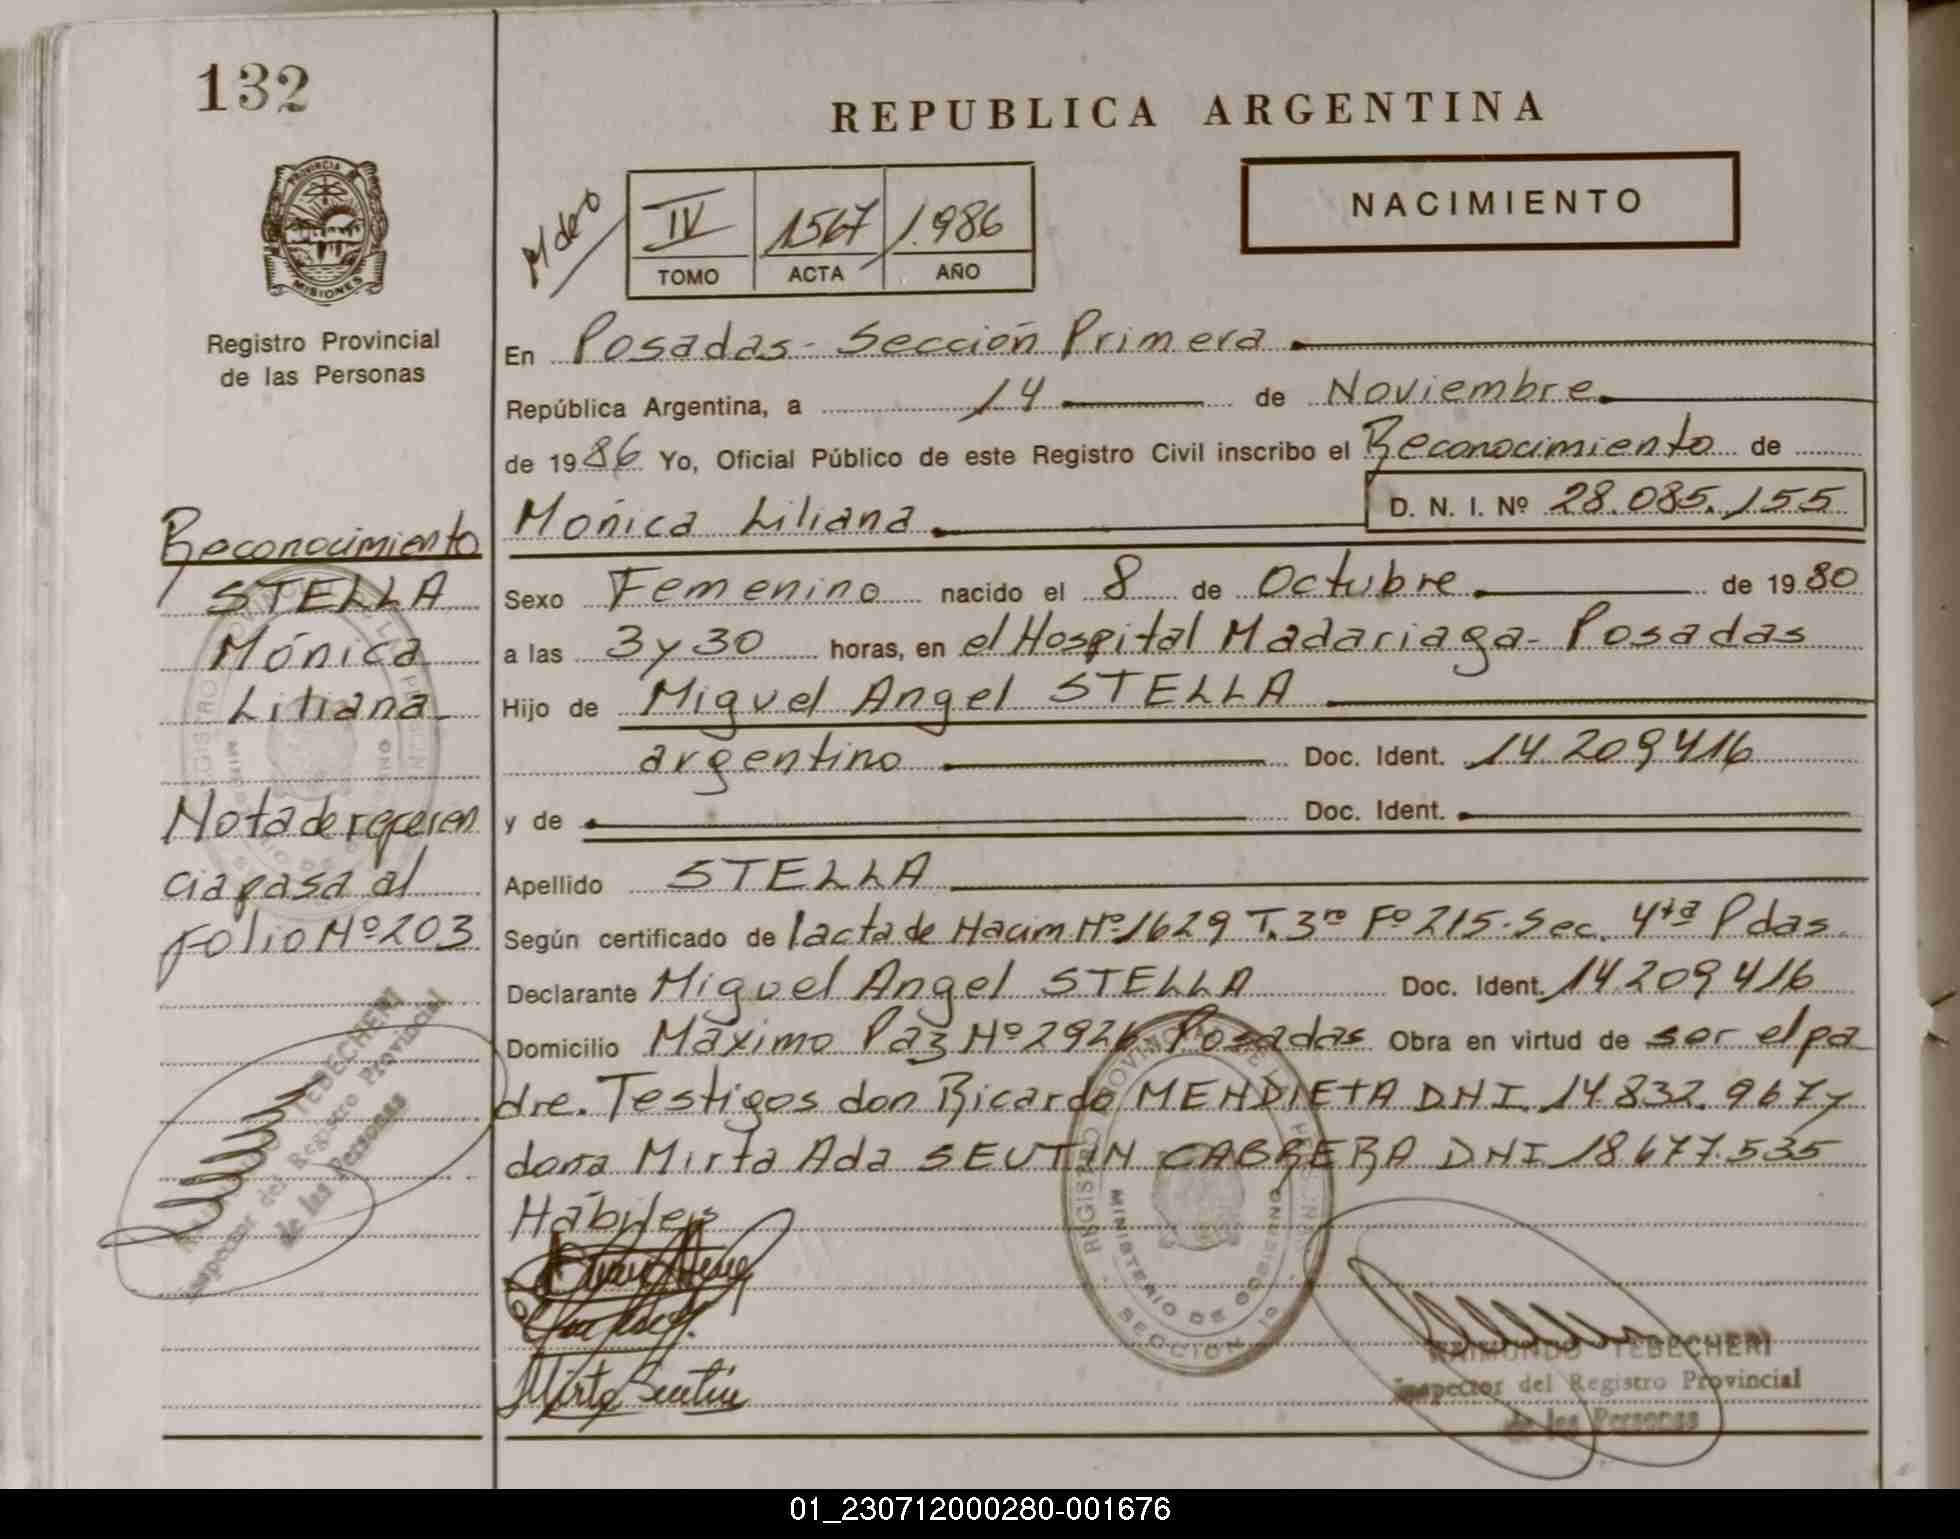 132
REPUBLICA ARGENTINA
PROVINCIA DE
MISIONES
Registro Provincial
de las Personas
NACIMIENTO
IV 1567 1.986
TOMO ACTA AÑO
En Posadas - Sección Primera
República Argentina, a 14 de Noviembre
de 1986 Yo, Oficial Público de este Registro Civil inscribo el Reconocimiento de
Mónica Liliana D. N. I. Nº 28.085.155
Sexo Femenino nacido el 8 de Octubre de 1980
a las 3 y 30 horas, en el Hospital Madariaga - Posadas
Hijo de Miguel Angel STELLA
argentino Doc. Ident. 14.209416
y de Doc. Ident.
Apellido STELLA
Según certificado de l acta de Nacim Nº 1629 T. 3ro Fº 215 - Sec. 4ta Pdas.
Declarante Miguel Angel STELLA Doc. Ident. 14.209416
Domicilio Máximo Paz Nº 2926 Posadas Obra en virtud de ser el pa
dre. Testigos don Ricardo MENDIETA DNI 14.832.967 y
doña Mirta Ada SEUTIN CABRERA DNI 18.677.535
Hábiles
Mirta Seutin
REGISTRO PROVINCIAL DE LAS PERSONAS
MINISTERIO DE GOBIERNO
SECCION 1º
RAIMUNDO TEBECHERI
Inspector del Registro Provincial
de las Personas
Reconocimiento
STELLA
Mónica
Liliana
Nota de referen
cia pasa al
folio Nº 203
RAIMUNDO TEBECHERI
Inspector del Registro Provincial
de las Personas
01_230712000280-001676